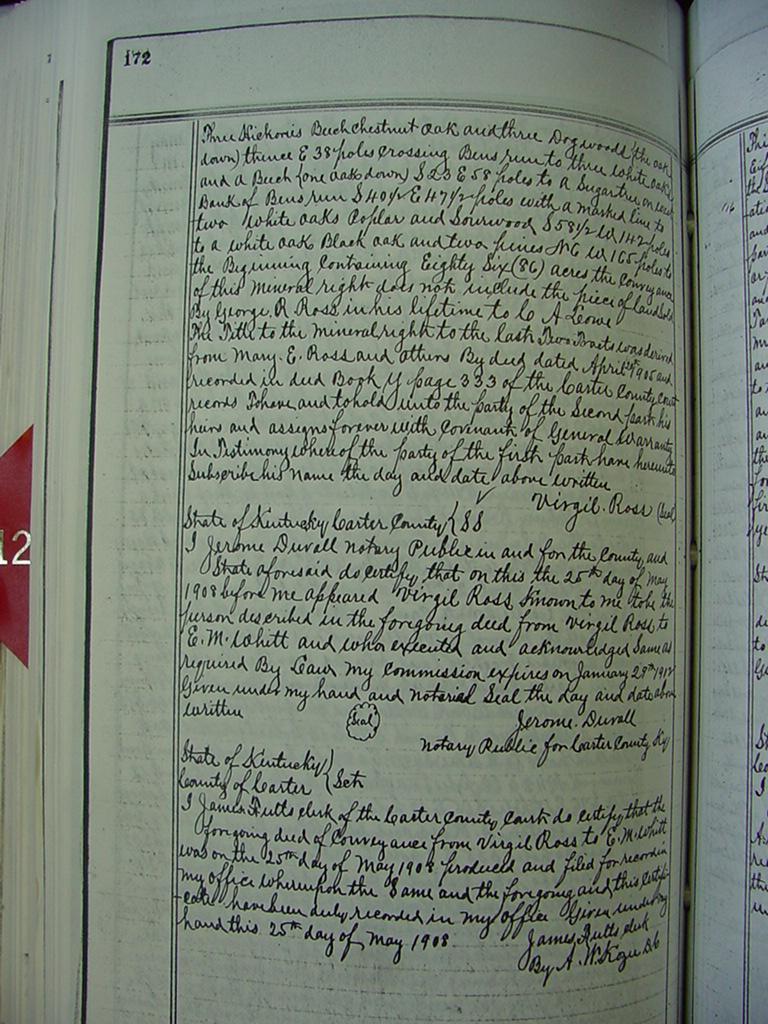 172
Three Hickories Beech chestnut oak and three Dogwoods (the oak
down) thence E 38 poles crossing Bens run to three white oaks
and a Beech (one oak down) S 23 E 58 poles to a Sugartree on west
Bank of Bens run S 40 1/2 E 47 1/2 poles with a marked line to
two white oaks Poplar and Sourwood S 58 1/2 W 142 poles
to a white oak Black oak and two pines N 6 W 165 poles to
the Beginning Containing Eighty Six (86) acres the conveyance
of this mineral right does not include the piece of land sold
By George R Ross in his lifetime to C A Lowe
The Title to the mineral right to the last Two Tracts was derived
from Mary. E. Ross and others By deed dated April 1905 and
recorded in deed Book Y page 333 of the Carter County Court
records To have and to hold unto the party of the Second part his
heirs and assigns forever with Covenant of General Warranty
In Testimony whereof the party of the first part have hereunto
Subscribe his name the day and date above written
Virgil. Ross (Seal)
State of Kentucky Carter County { SS
I Jerome Duvall Notary Public in and for the County and
State aforesaid do certify that on this the 25th day of May
1908 before me appeared Virgil Ross known to me to be the
person described in the foregoing deed from Virgil Ross to
E. M. Whitt and who executed and acknowledged Same as
required By Law my commission expires on January 28th 1912
Given under my hand and notarial Seal the day and date above
written
Seal
Jerome. Duvall
Notary Public for Carter County Ky
State of Kentucky }
County of Carter { Sct
I James Fults clerk of the Carter County Court do certify that the
foregoing deed of Conveyance from Virgil Ross to E. M. Whitt
was on the 25th day of May 1908 produced and filed for record in
my office whereupon the Same and the foregoing and this certifi-
cate have been duly recorded in my office Given under my
hand this 25th day of May 1908.
James Fults clerk
By A. W. Kozee D.C
12